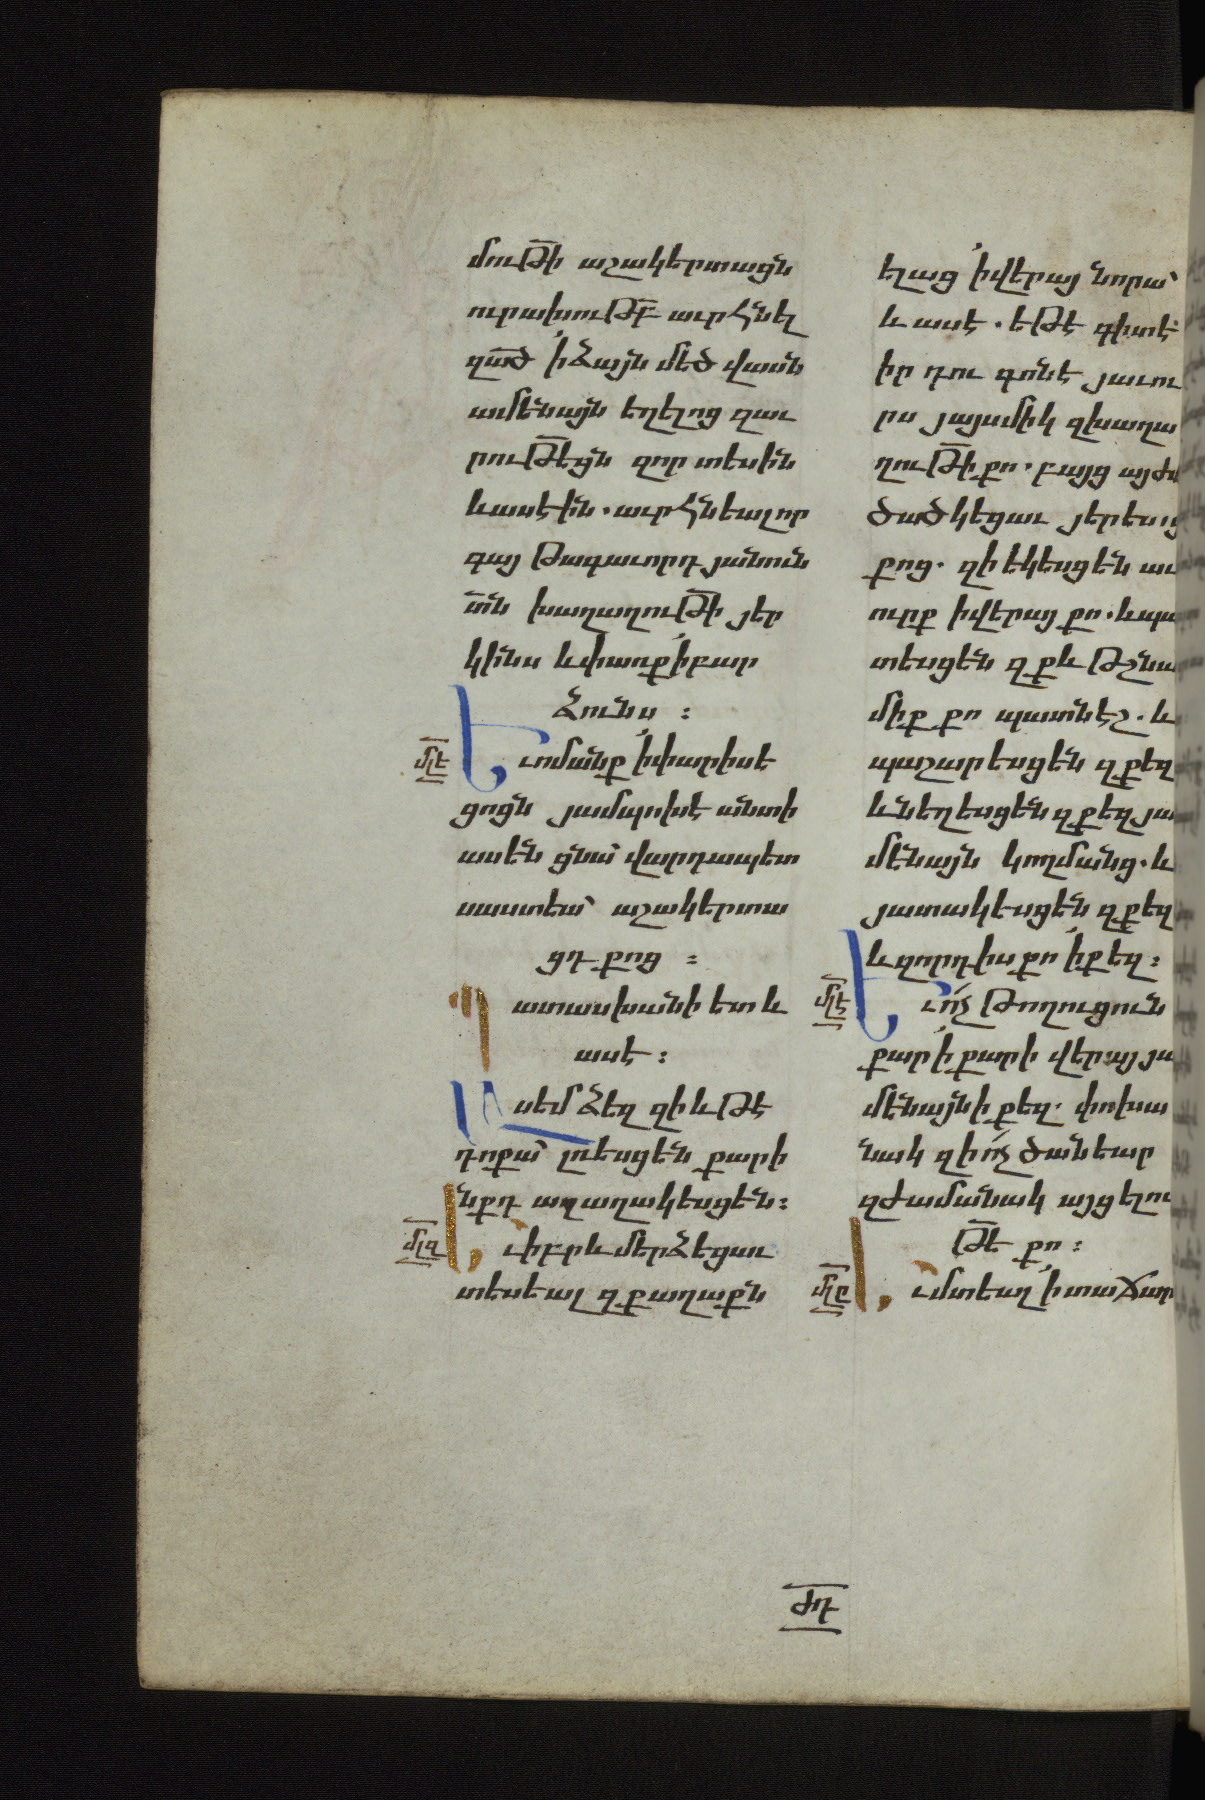 մութի աշակերտացն
ուրախութբ աւրհնել
զած ի ձայն մեծ վասն
ամենայն եղելոց զաւ
րութեցն զոր տեսին
և ասէին. աւրհնեալ որ
գայ թագաւորդ յանուն
տն խաղաղութի յեր
կինս և փառք ի բար
ձունս :
մլե
Եւ ոմանք ի փարիսե
ցոցն յամպոխէ անտի
ասեն ցնա՝ վարդապետ
սաստեա՝ աշակերտա
ցդ քոց :
Պատասխանի ետ և
ասէ :
Ասեմ ձեզ զի և թէ
դոքա՝ լռեսցեն քարի
նքդ աղաղակեսցեն :
մլզ
Եւ իբրև մերձեցաւ
տեսեալ զքաղաքն
ելաց ի վերայ նորա՝
և ասէ. եթէ գիտէ
իր դու գոնէ յաւու
րս յայսմիկ զխաղա
ղութի քո. բայց այժմ
ծածկեցաւ յերեսաց
քոց. զի եկեսցեն աւ
ուրք ի վերայ քո. և պա
տեսցեն զքև թշնա
միք քո պատնէշ. և
պաշարեսցեն զքեզ
և նեղեսցեն զքեզ յա
մենայն կողմանց. և
յատակեսցեն զքեզ
և զորդիս քո ի քեզ :
մլէ
Եւ ոչ թողուցուն
քար ի քարի վերայ յա
մենայնի քեզ. փոխա
նակ զի ոչ ծանեար
զժամանակ այցելու
թե քո :
մլը
Եւ մտեալ ի տաճար
ժդ